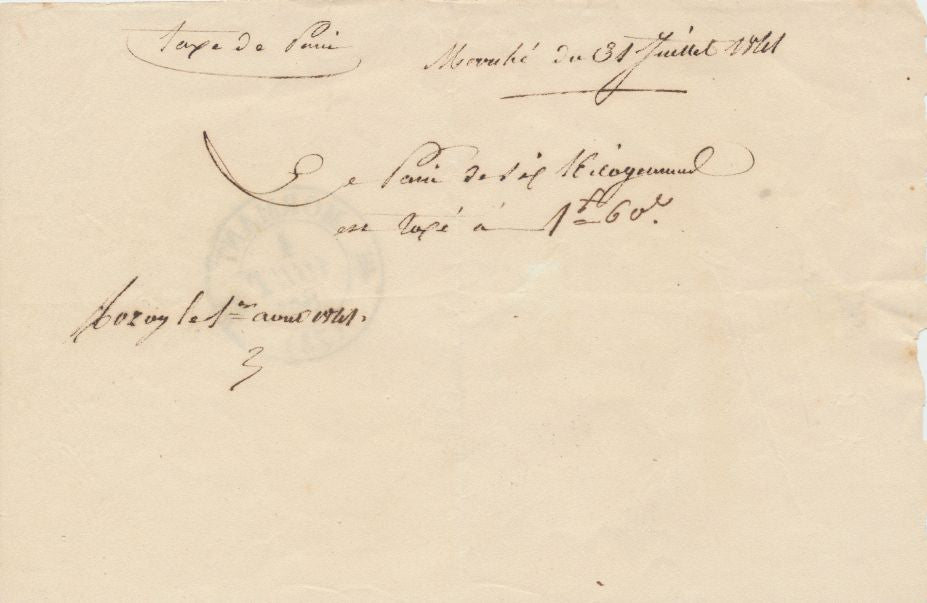 taxe de Pain
Marché du 31 Juillet 1841
Le Pain de six Kilogrammes
est taxé à 1f 60c.
le 1er aout 1841.